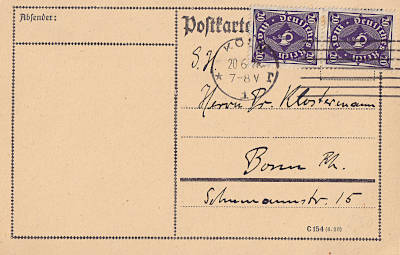 Absender:
Postkarte
Deutsches Reich 20 Deutsches Reich 20
20.6.
7-8 V
S. H.
Herrn Dr. Klostermann
Bonn Rh.
Schumannstr. 15
C 154